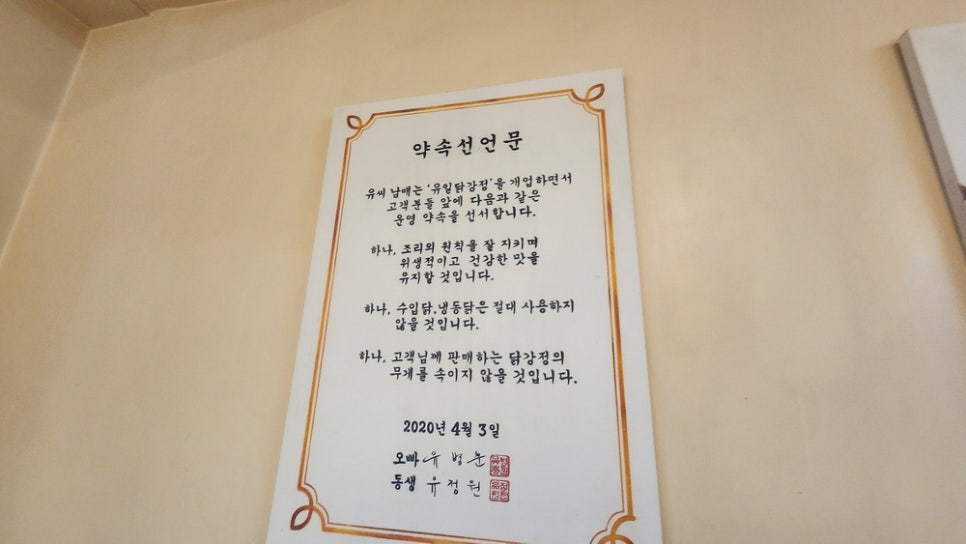 약속선언문
유씨 남매는 '유일닭강정'을 개업하면서
고객분들 앞에 다음과 같은
운영 약속을 선서합니다.
하나, 조리의 원칙을 잘 지키며
위생적이고 건강한 맛을
유지할 것입니다.
하나, 수입닭,냉동닭은 절대 사용하지
않을 것입니다.
하나, 고객님께 판매하는 닭강정의
무게를 속이지 않을 것입니다.
2020년 4월 3일
오빠 유병준
동생 유정원